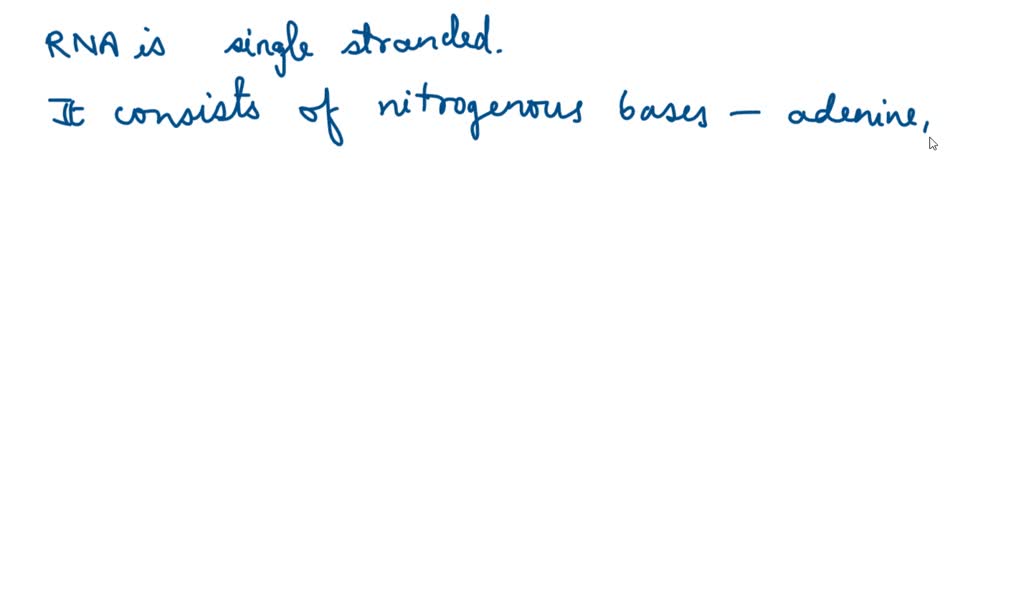 RNA is single stranded.
It consists of nitrogenous bases – adenine,